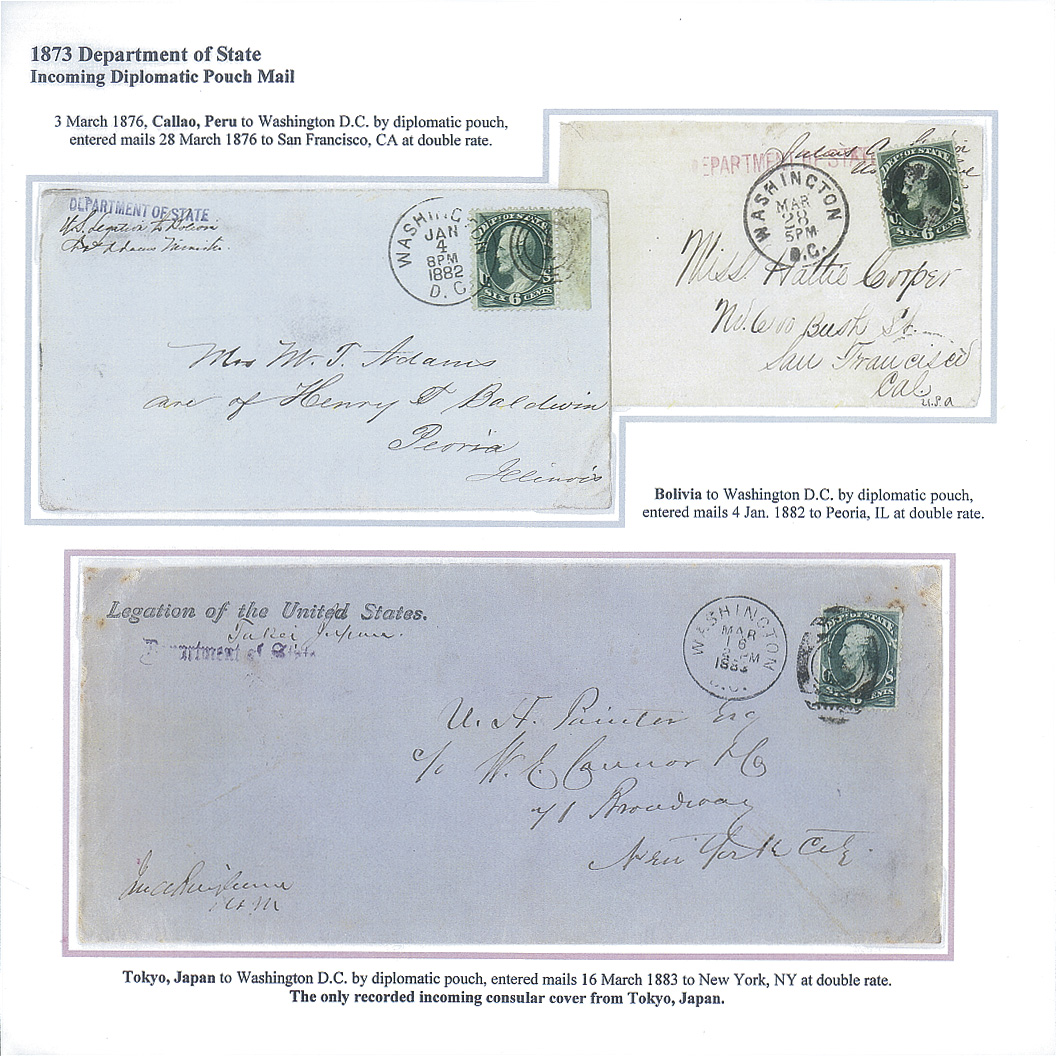 1873 Department of State
Incoming Diplomatic Pouch Mail
3 March 1876, Callao, Peru to Washington D.C. by diplomatic pouch,
entered mails 28 March 1876 to San Francisco, CA at double rate.
EPARTMENT OF STATE
WASHINGTON
MAR
28
5PM
D.C.
DEPT OF STATE
U. S.
SIX 6 CENTS
Miss Hattie Cooper
No. 600 Bush St.
San Francisco
Cal
U.S.A
DEPARTMENT OF STATE
U.S. Legation to Bolivia
Adams Minister
WASHING
JAN
4
8PM
1882
D. C.
DEPT OF STATE
U. S.
SIX 6 CENTS
Mrs M. T. Adams
are of Henry T Baldwin
Peoria
Illinois
Bolivia to Washington D.C. by diplomatic pouch,
entered mails 4 Jan. 1882 to Peoria, IL at double rate.
Legation of the United States.
Tokei Japan.
Department of State
WASHINGTON
MAR
16
PM
1883
D.C.
DEPT OF STATE
S
6 CENTS
U. H. Painter Esq
c/o W. E. Connor & Co
71 Broadway
New York City.
Tokyo, Japan to Washington D.C. by diplomatic pouch, entered mails 16 March 1883 to New York, NY at double rate.
The only recorded incoming consular cover from Tokyo, Japan.